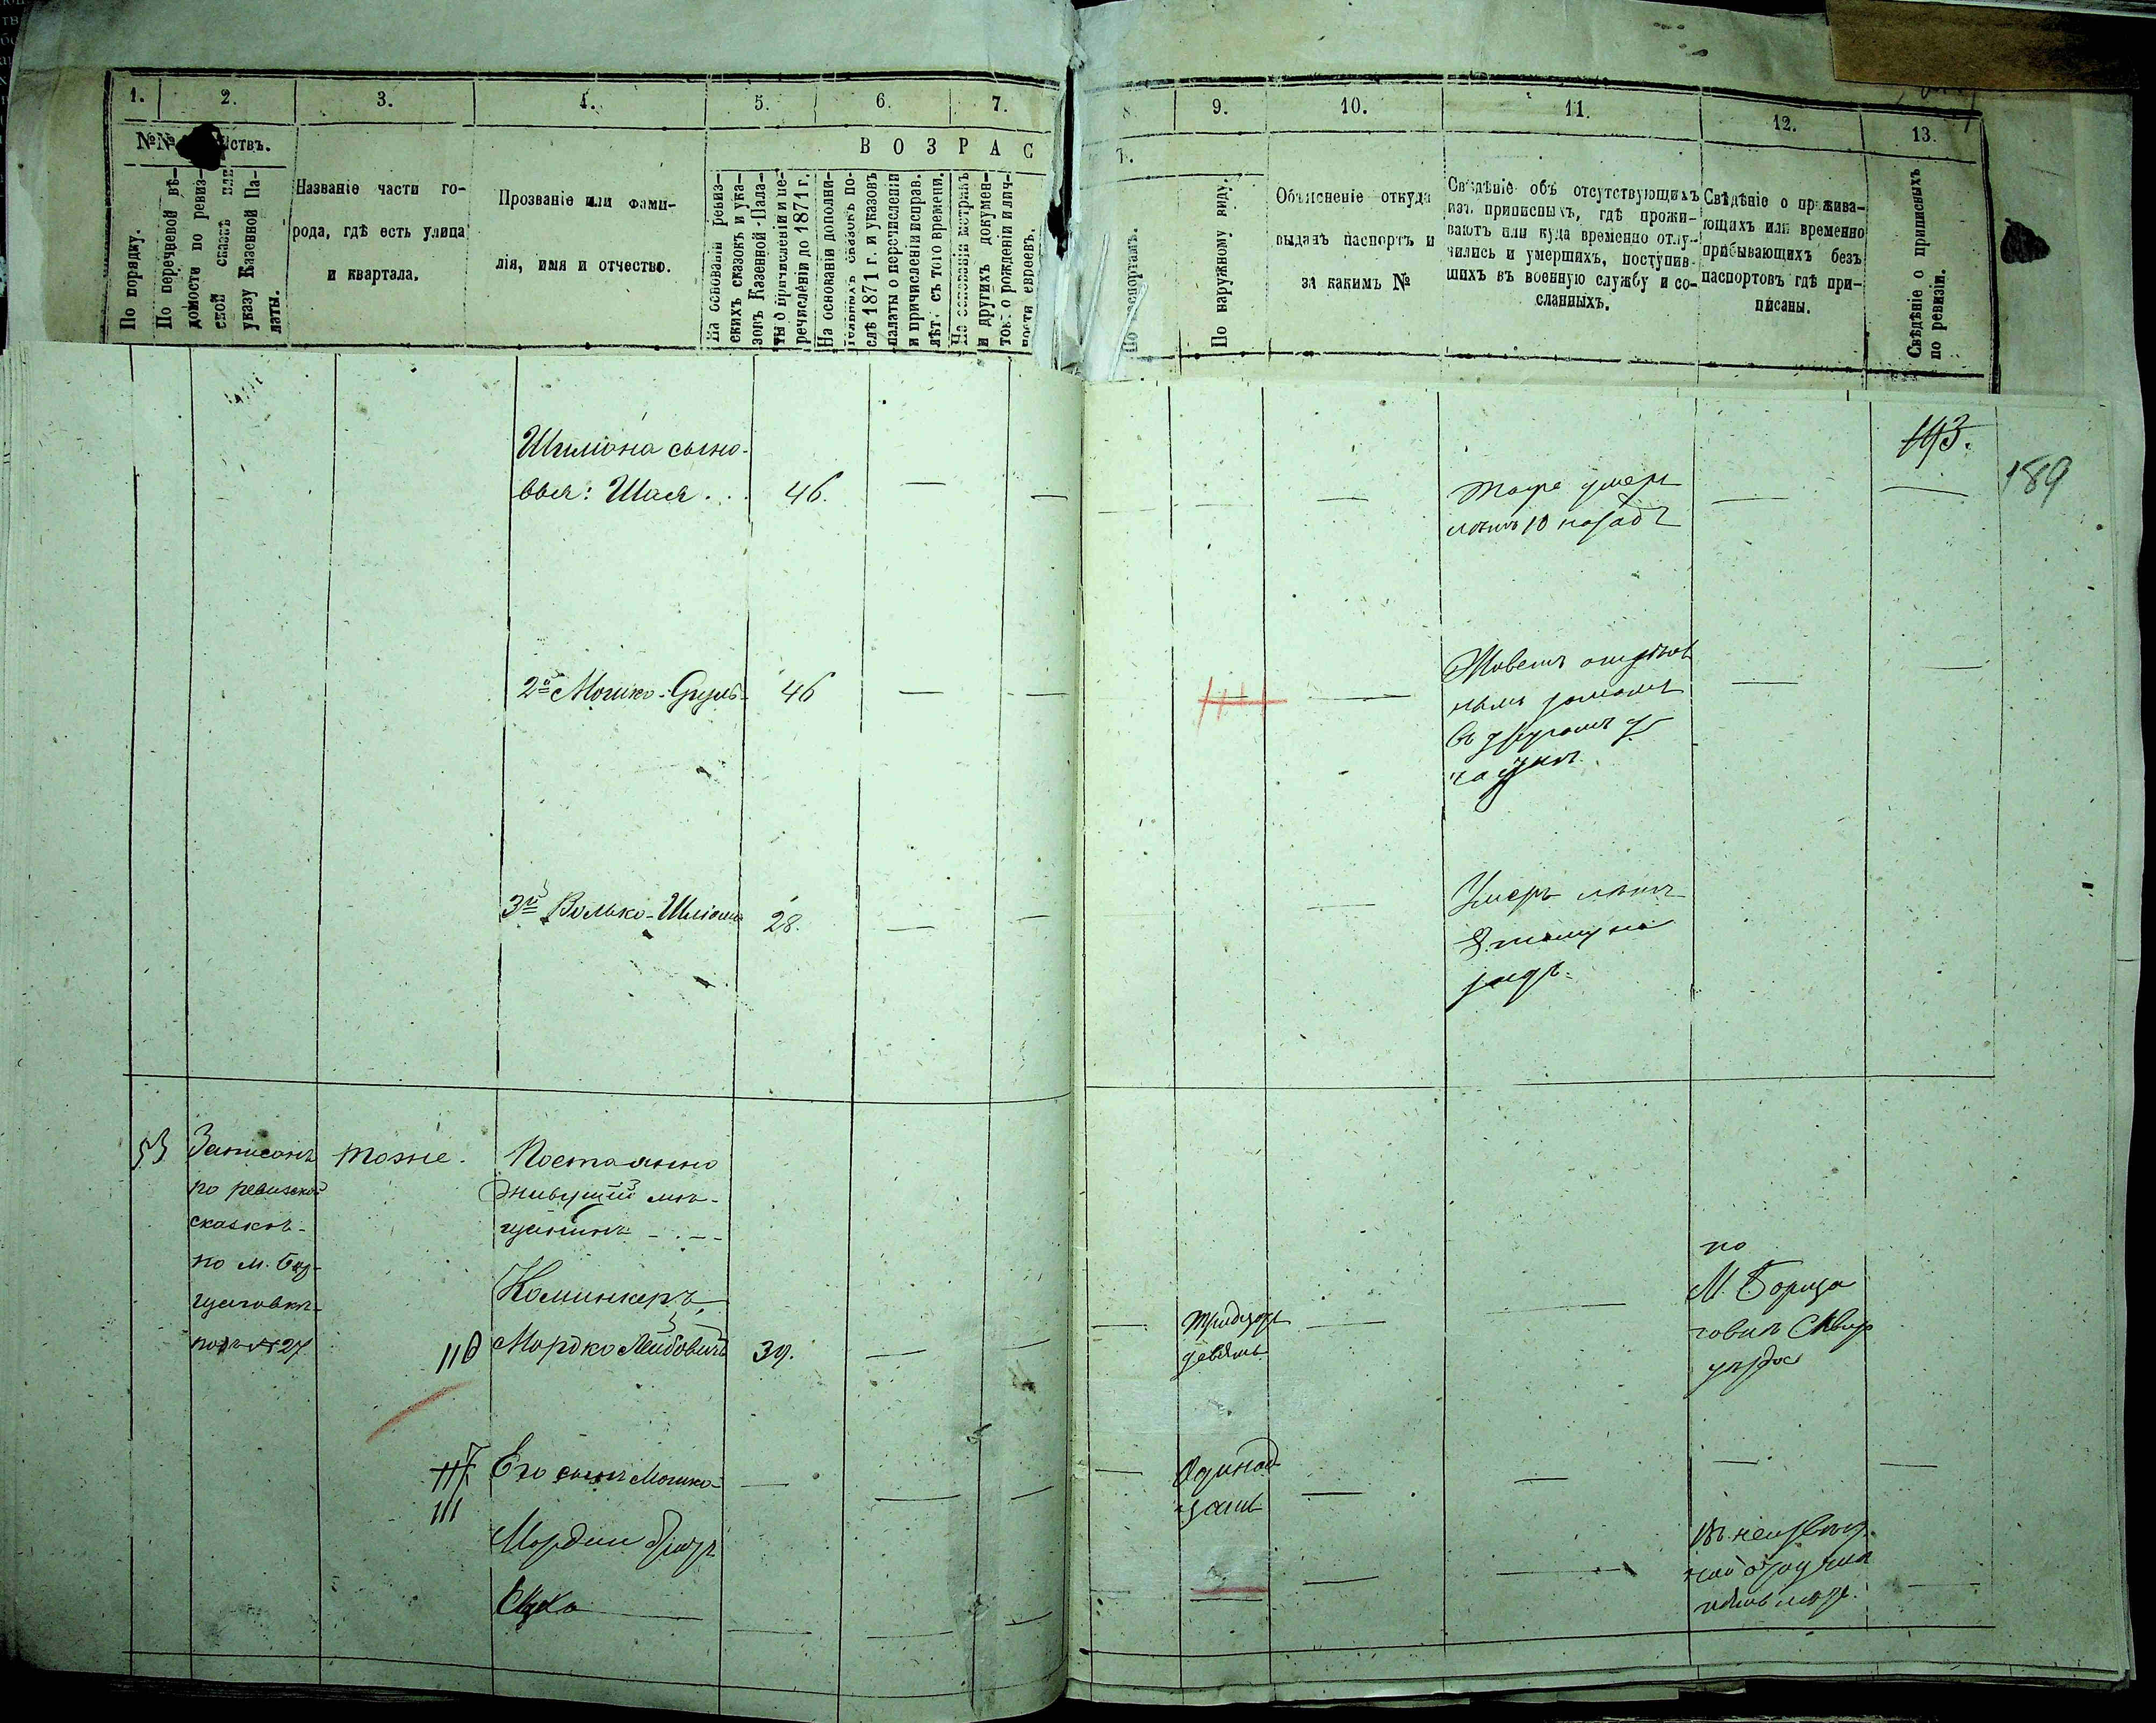 1. 2. 3. 4. 5. 6. 7. 8. 9. 10. 11. 12. 13.
№№ ствъ.
В О З Р А С Т.
По порядку.
По перечневой вѣ-
домости по ревиз-
ской сказкѣ или
указу Казенной Па-
латы.
Названіе части го-
рода, гдѣ есть улица
и квартала.
Прозваніе или фами-
лія, имя и отчество.
На основаніи ревиз-
скихъ сказокъ и ука-
зовъ Казенной Пала-
ты о причисленіи и пе-
речисленіи до 1871 г.
На основаніи дополни-
тельныхъ сказокъ по-
слѣ 1871 г. и указовъ
палаты о перечисленіи
и причисленіи исправ.
лѣтъ съ того времени.
На основаніи метрикъ
и другихъ докумен-
товъ о рожденіи и лич-
ности евреевъ.
По паспортамъ.
По наружному виду.
Объясненіе откуда
выданъ паспортъ и
за какимъ №
Свѣдѣніе объ отсутствующихъ
изъ приписныхъ, гдѣ прожи-
ваютъ или куда временно отлу-
чились и умершихъ, поступив-
шихъ въ военную службу и со-
сланныхъ.
Свѣдѣніе о прожива-
ющихъ или временно
прибывающихъ безъ
паспортовъ гдѣ при-
писаны.
Свѣдѣніе о приписныхъ
по ревизіи.
189
Шліома сыно-
вья: Шая . . . 46. — —
— — умеръ
лѣтъ 10 назадъ — —
2й Мошко-Сруль 46 — —
— Живетъ отдѣль
нымъ домомъ
въ другомъ у
часткѣ — —
3й Волько-Шліома 28. — —
— Умеръ лѣтъ
8 тому на
задъ.
53 Записанъ
по ревизской
сказкѣ
по м. Бор-
щаговкѣ
подъ № 27
тоже.
Постоянно
живущій мѣ-
щанинъ
110 Мордко Лейбовичъ 39. — —
— тридцать
девять — —
по
М. Борща
говкѣ Сквир
уѣзда
111 Его сынъ Мошко — — —
— Одинад
цать — — — —
Мордки братъ
— — —
— — —